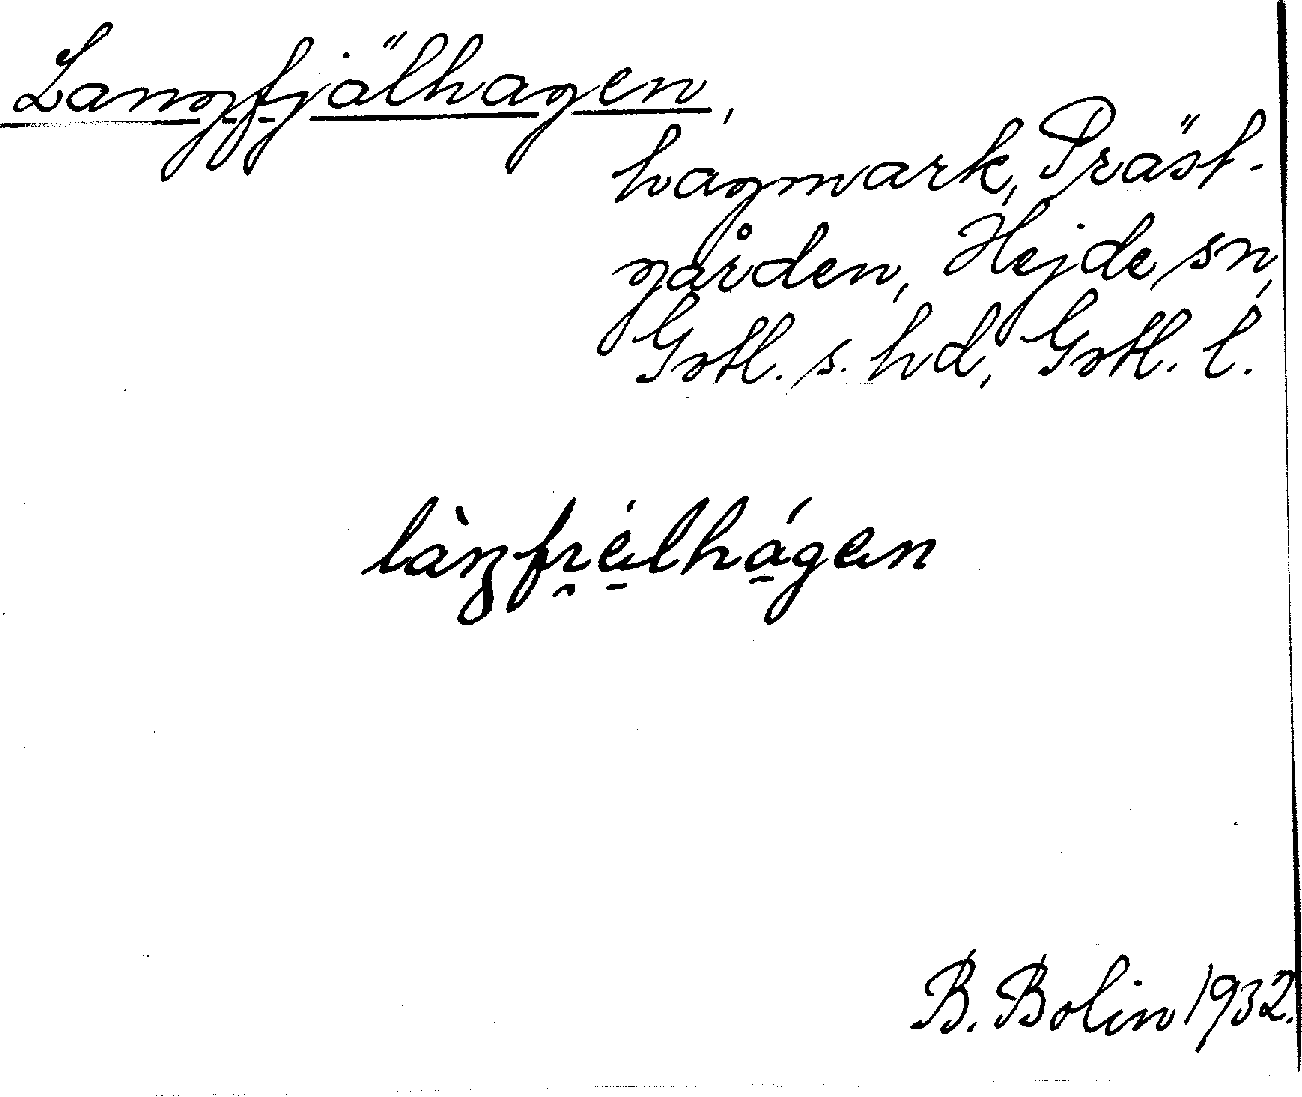 Langfjälhagen,
hagmark, Präst-
gården, Hejde sn,
Gotl. s. hd, Gotl. l.
làŋfi̯é̱lhá̱gen
B. Bolin 1932.